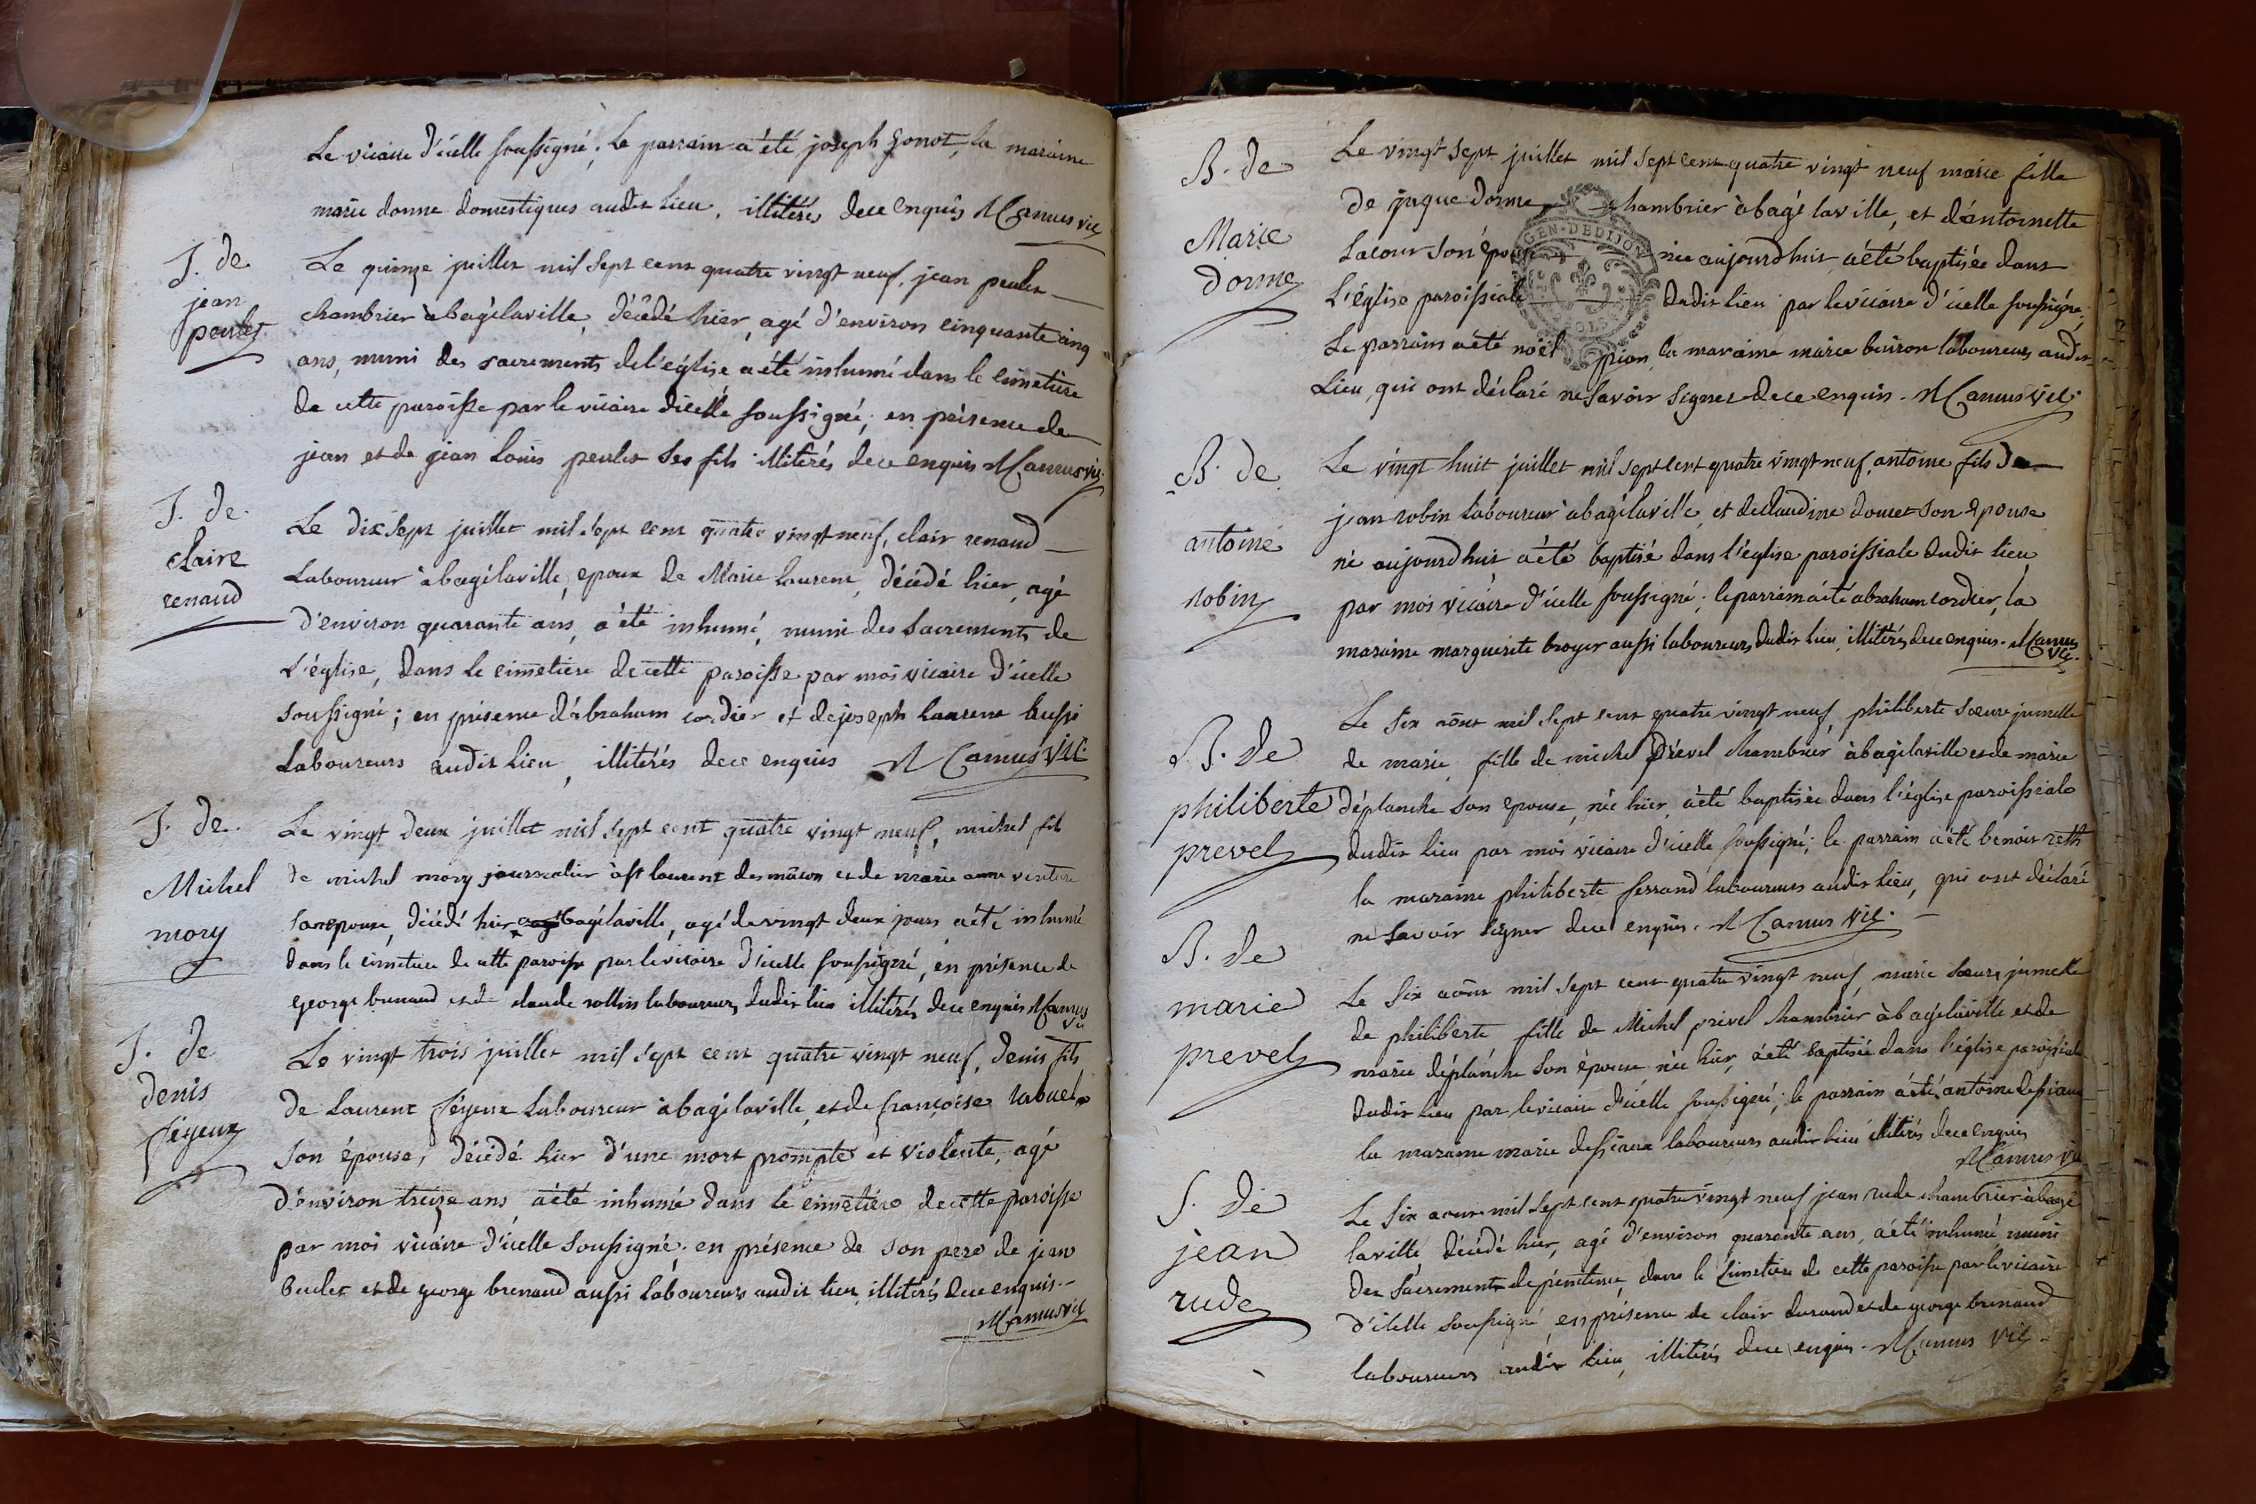 Le vicaire d'icelle soussigné; Le parrain a été joseph gonot, la maraine
marie donne domestiques audit lieu, illitérés de ce enquis M Camus vic
J. de
jean
peulet
Le quinze juillet mil sept cent quatre vingt neuf, jean peulet
chambrier à bagélaville, décédé hier, agé d'environ cinquante cinq
ans, muni des sacrements de l'église a été inhumé dans le cimetiere
de cette paroisse par le vicaire d'icelle soussigné; en présence de
jean et de jean Louis peulet ses fils illiterés de ce enquis M Camus vic.
J. de.
claire
renaud
Le dix sept juillet mil sept cent quatre vingt neuf, clair renaud
Laboureur à bagélaville, epoux de Marie Laurent, décédé hier, agé
d'environ quarante ans, a été inhumé, muni des Sacrements de
L'église, dans Le cimetiere de cette paroisse par moi vicaire d'icelle
soussigné; en présence d'abraham cordier et de joseph Laurent aussi
Laboureurs audit Lieu, illitérés de ce enquis M Camus Vic.
J. de.
Michel
mory
Le vingt deux juillet mil sept cent quatre vingt neuf, michel fils
de michel mory journalier à st laurent des mâcon et de marie anne venture
son epouse, décédé hier à bagélaville, agé de vingt deux jours a été inhumé
dans le cimetiere de cette paroisse par le vicaire d'icelle soussigné, en présence de
george brenaud et de claude rollin laboureurs dudit lieu illitérés de ce enquis M Camus
vic
J. de
denis
féyeux
Le vingt trois juillet mil sept cent quatre vingt neuf, denis fils
de Laurent féyeux Laboureur à bagélaville, et de françoise
son épouse, décédé hier d'une mort prompte et violente, agé
d'environ treize ans a été inhumé dans le cimetiere de cette paroisse
par moi vicaire d'icelle soussigné; en présence de son pere de jean
et de george brenaud aussi laboureurs audit lieu, illitérés de ce enquis.
M Camus vic
B. de
Marie
dorme
Le vingt sept juillet mil sept cent quatre vingt neuf marie fille
de jaque dorme chambrier à bagé laville, et d'antoinette
Lacour son épouse née aujourd'hui, a été baptisée dans
L'église paroissiale dudit Lieu par le vicaire d'icelle soussigné;
Le parrain a été noël pion, la maraine marie buiron laboureurs audit
Lieu, qui ont déclaré ne savoir signer de ce enquis. M Camus Vic.
GEN. DE DIJON
B. de
antoine
robin
Le vingt huit juillet mil sept cent quatre vingt neuf, antoine fils de
jean robin laboureur à bagélaville, et de claudine doucet son epouse
né aujourd'hui a été baptisé dans l'église paroissiale dudit lieu
par moi vicaire d'icelle soussigné; le parrain a été abraham cordier, la
maraine marguerite broyer aussi laboureurs dudit lieu, illitérés de ce enquis. M Camus
vic.
B. de
philiberte
prevel
Le six août mil sept cent quatre vingt neuf, philiberte sœur jumelle
de marie, fille de michel prével chambrier à bagélaville et de marie
déplanche son epouse, née hier, a été baptisée dans l'église paroissiale
dudit lieu par moi vicaire d'icelle soussigné; le parrain a été benoit
la maraine philiberte ferrand laboureurs audit lieu, qui ont déclaré
ne savoir signer de ce enquis. M Camus Vic.
B. de
marie
prevel
Le six août mil sept cent quatre vingt neuf, marie sœur jumelle
de philiberte fille de Michel prével chambrier à bagélaville et de
marie déplanche son épouse née hier, a été baptisée dans l'église paroissiale
dudit lieu par le vicaire d'icelle soussigné; le parrain a été antoine
la maraine marie laboureurs audit lieu illitérés de ce enquis
M Camus vic
S. de
jean
rude
Le six août mil sept cent quatre vingt neuf jean rude chambrier à bagé
laville décédé hier, agé d'environ quarante ans, a été inhumé muni
des sacrements de pénitence, dans le cimetiere de cette paroisse par le vicaire
d'icelle soussigné, en présence de clair durand et de george brenaud
laboureurs audit lieu, illitérés de ce enquis. M Camus Vic.